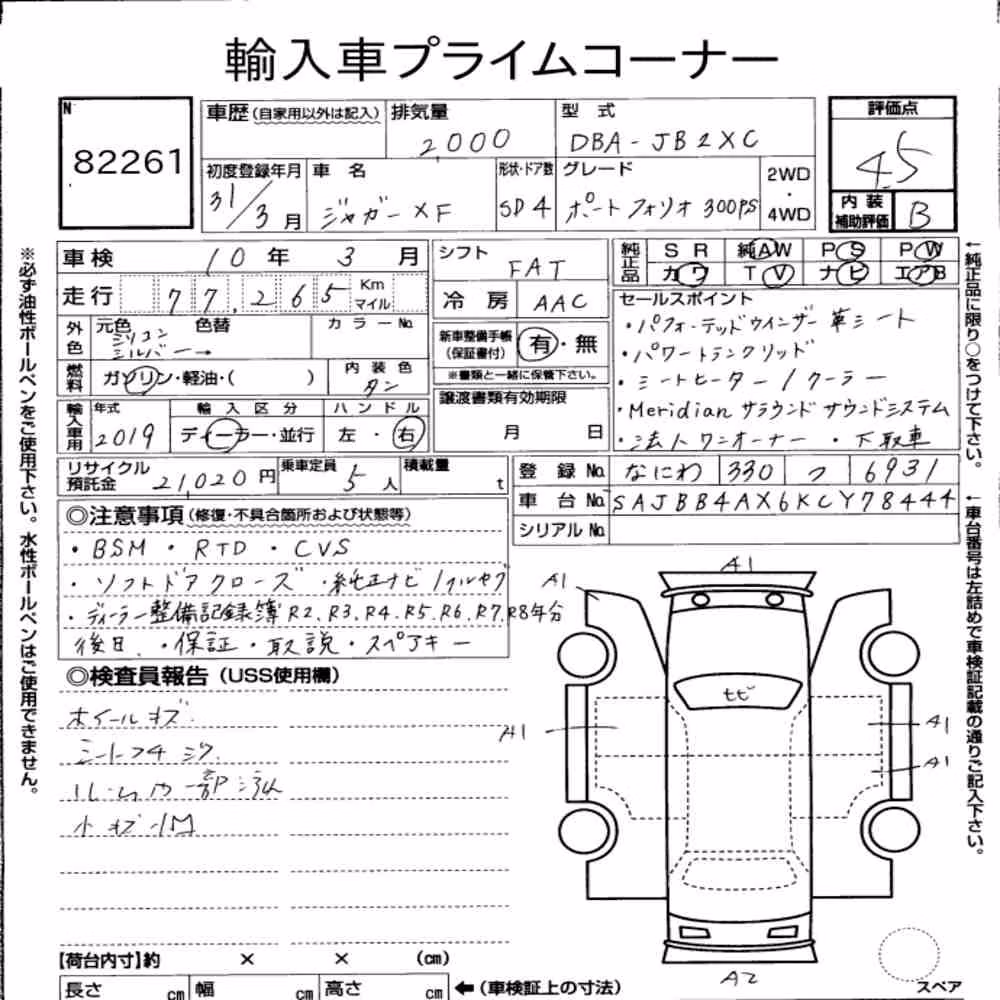 輸入車プライムコーナー
N
82261
車歴(自家用以外は記入)
排気量
2000
型 式
DBA-JB2XC
評価点
4.5
内装補助評価 B
初度登録年月
31/3月
車 名
ジャガーXF
形状・ドア数
SD4
グレード
ポートフォリオ 300PS
2WD
・
4WD
車検 10年 3月
走行 77,265 Km マイル
外色 元色 シリコンシルバー→ 色替 カラーNo.
燃料 ガソリン・軽油・( )
内装色 タン
輸入車用 年式 2019
輸入区分 ディーラー・並行
ハンドル 左・右
リサイクル預託金 21020円
乗車定員 5人
積載量 t
シフト FAT
冷房 AAC
新車整備手帳(保証書付) 有・無
※書類と一緒に保管下さい。
譲渡書類有効期限
月 日
純正品 SR 純AW PS PW
カワ TV ナビ エアB
セールスポイント
・パフォーテッドウインザー革シート
・パワートランクリッド
・シートヒーター/クーラー
・Meridian サラウンドサウンドシステム
・法人ワンオーナー ・下取車
登録No. なにわ 330 つ 6931
車台No. SAJBB4AX6KCY78444
シリアルNo.
◎注意事項(修復・不具合箇所および状態等)
・BSM ・RTD ・CVS
・ソフトドアクローズ ・純正ナビ/フルセグ
・ディーラー整備記録簿R2、R3、R4、R5、R6、R7、R8年分
後日、・保証・取説・スペアキー
◎検査員報告(USS使用欄)
ホイールキズ
シートフチ シワ
小キズ 凹
A1
A1
A1
A1
A1
A2
スペア
【荷台内寸】約 × × (cm)
長さ cm 幅 cm 高さ cm ←(車検証上の寸法)
※必ず油性ボールペンをご使用下さい。水性ボールペンはご使用できません。
←純正品に限り○をつけて下さい。
←車台番号は左詰めで車検証記載の通りご記入下さい。